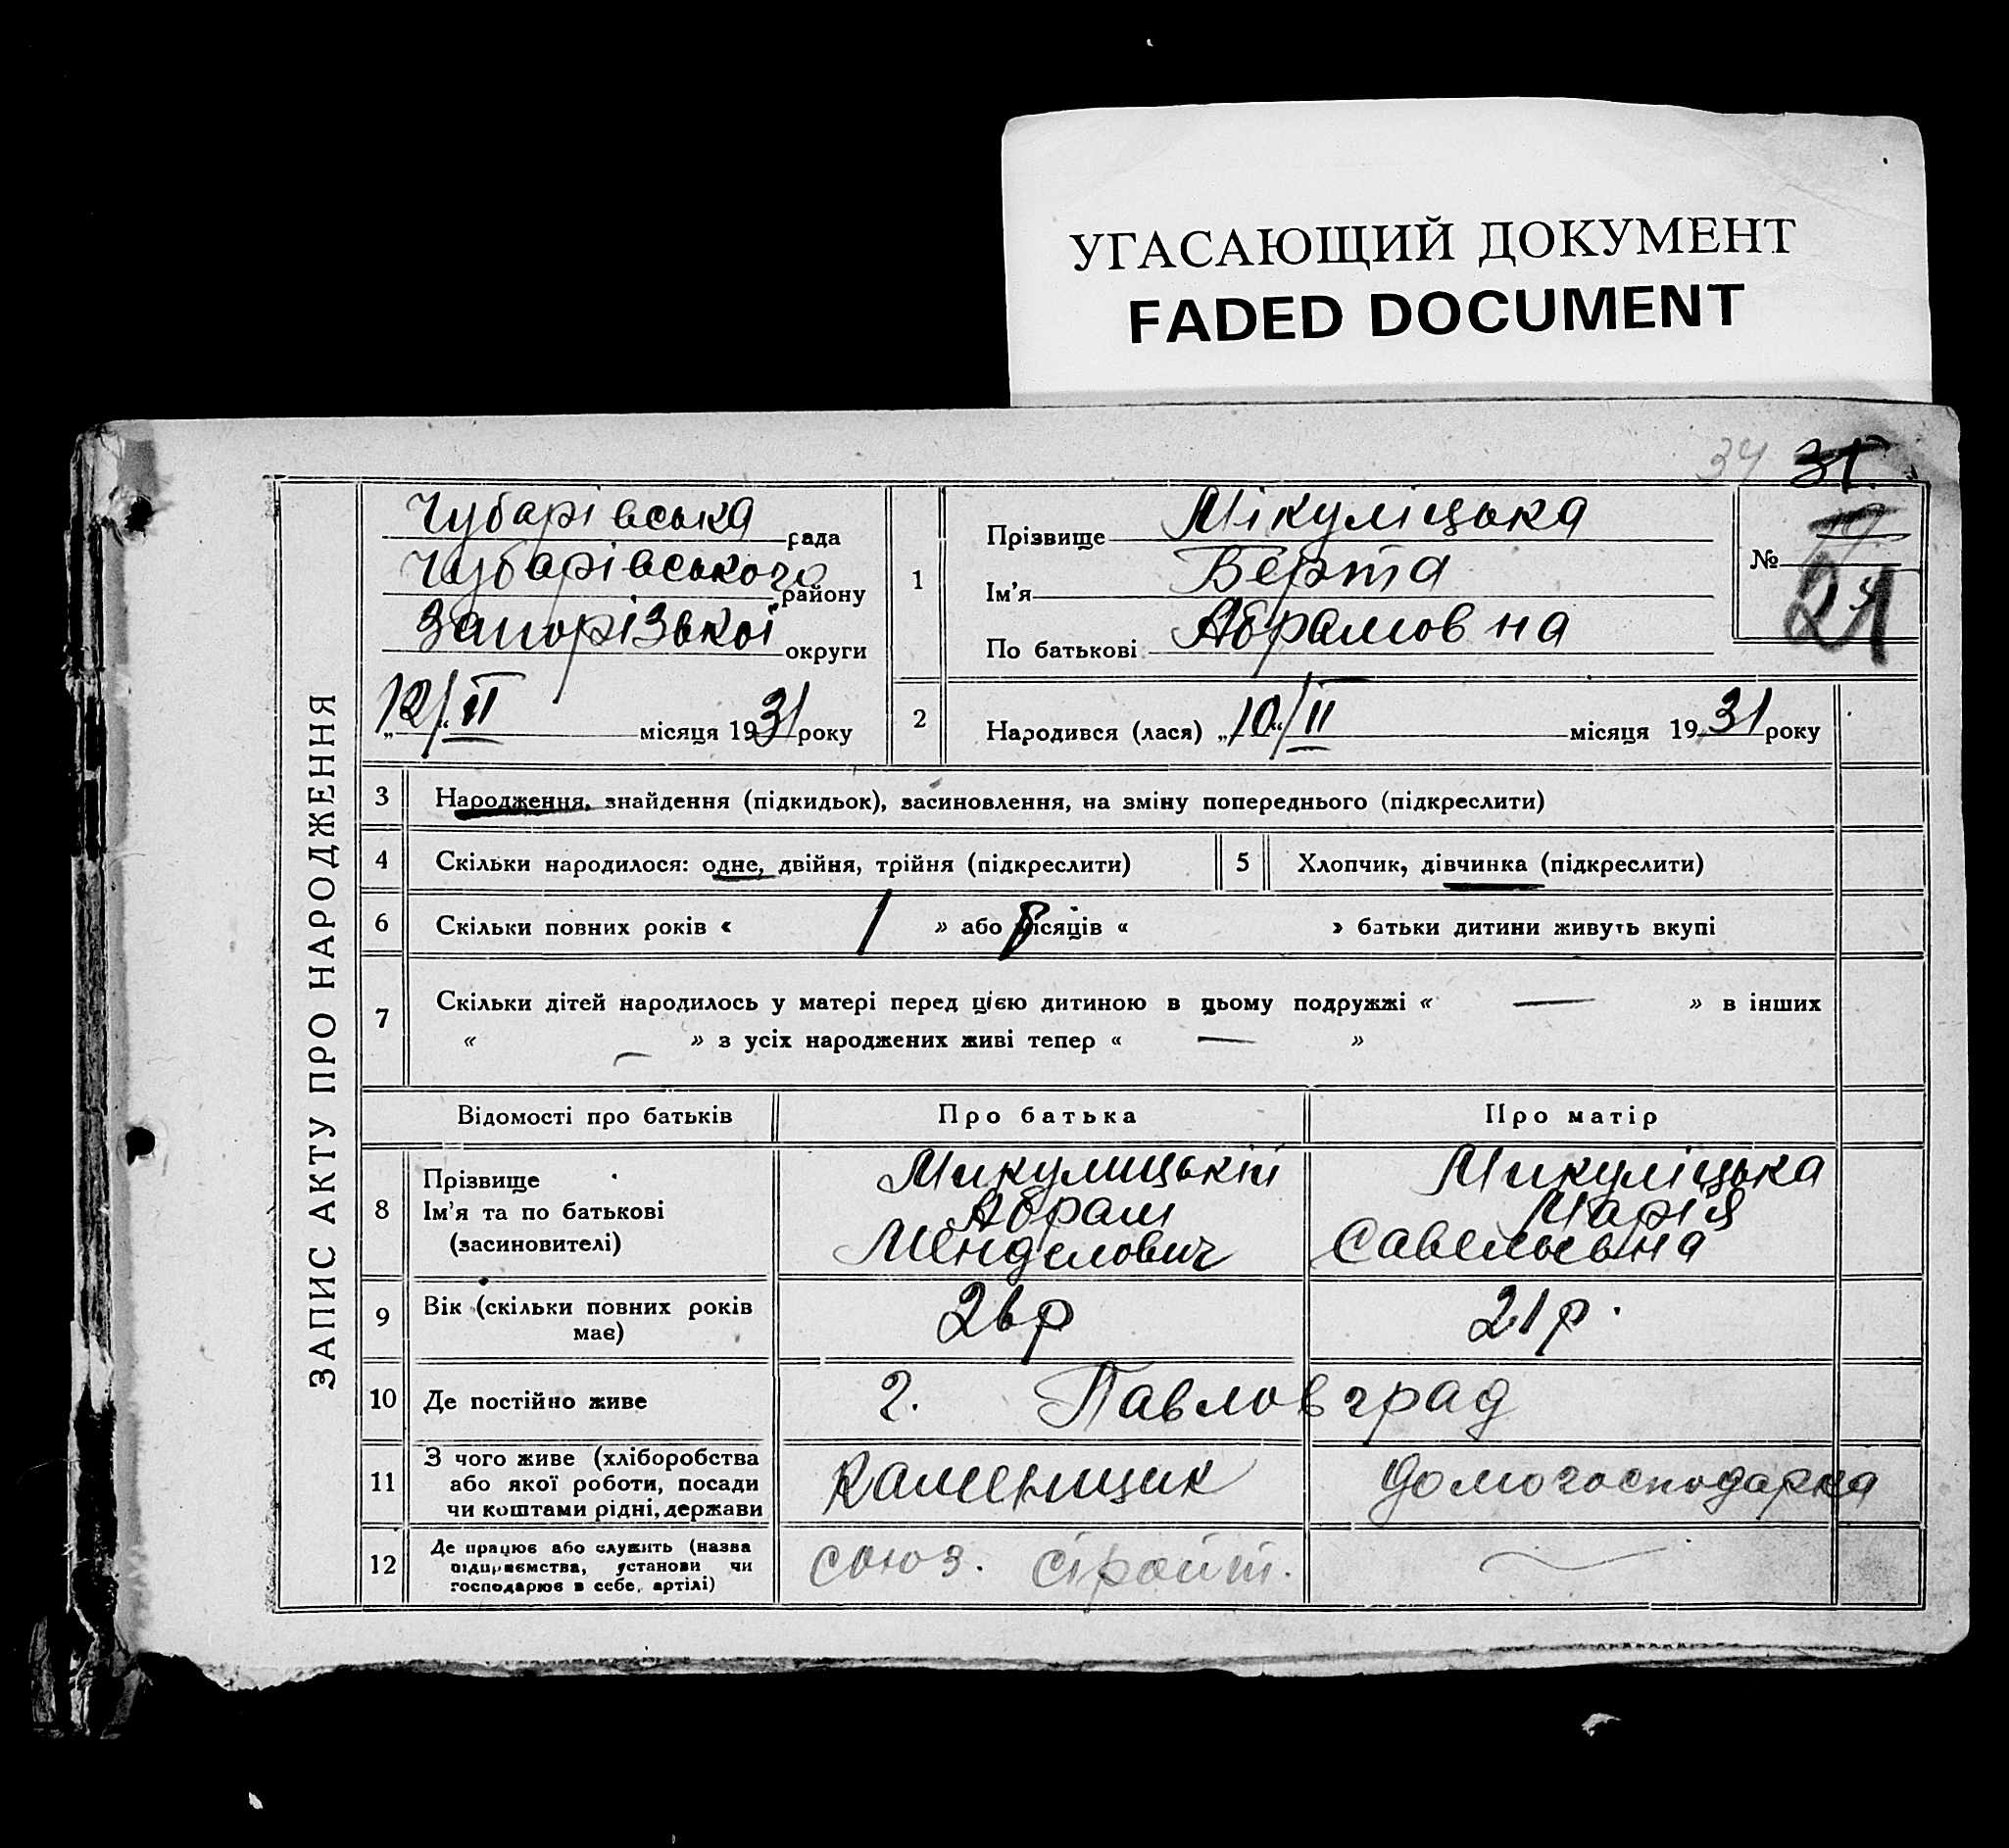 УГАСАЮЩИЙ ДОКУМЕНТ
FADED DOCUMENT
34 31.
ЗАПИС АКТУ ПРО НАРОДЖЕННЯ
Чубарівська рада
Чубарівського району
Запорізької округи
„12“ II місяця 1931 року
1
Прізвище Мікуліцька
Ім'я Берта
По батькові Абрамовна
№ 21
2 Народився (лася) „10“ II місяця 1931 року
3 Народження, знайдення (підкидьок), засиновлення, на зміну попереднього (підкреслити)
4 Скільки народилося: одне, двійня, трійня (підкреслити) 5 Хлопчик, дівчинка (підкреслити)
6 Скільки повних років « 1 » або місяців « » батьки дитини живуть вкупі
7 Скільки дітей народилось у матері перед цією дитиною в цьому подружжі « — » в інших
« — » з усіх народжених живі тепер « — »
Відомості про батьків Про батька Про матір
8 Прізвище Микулицький Микуліцька
Ім'я та по батькові Абрам Марія
(засиновителі) Менделович Савельевна
9 Вік (скільки повних років має) 26р 21р.
10 Де постійно живе г. Павловград
11 З чого живе (хліборобства
або якої роботи, посади Каменщик домогосподарка
чи коштами рідні, держави
12 Де працює або служить (назва
підприємства, установи чи союз. строит.
господарює в себе, артілі)